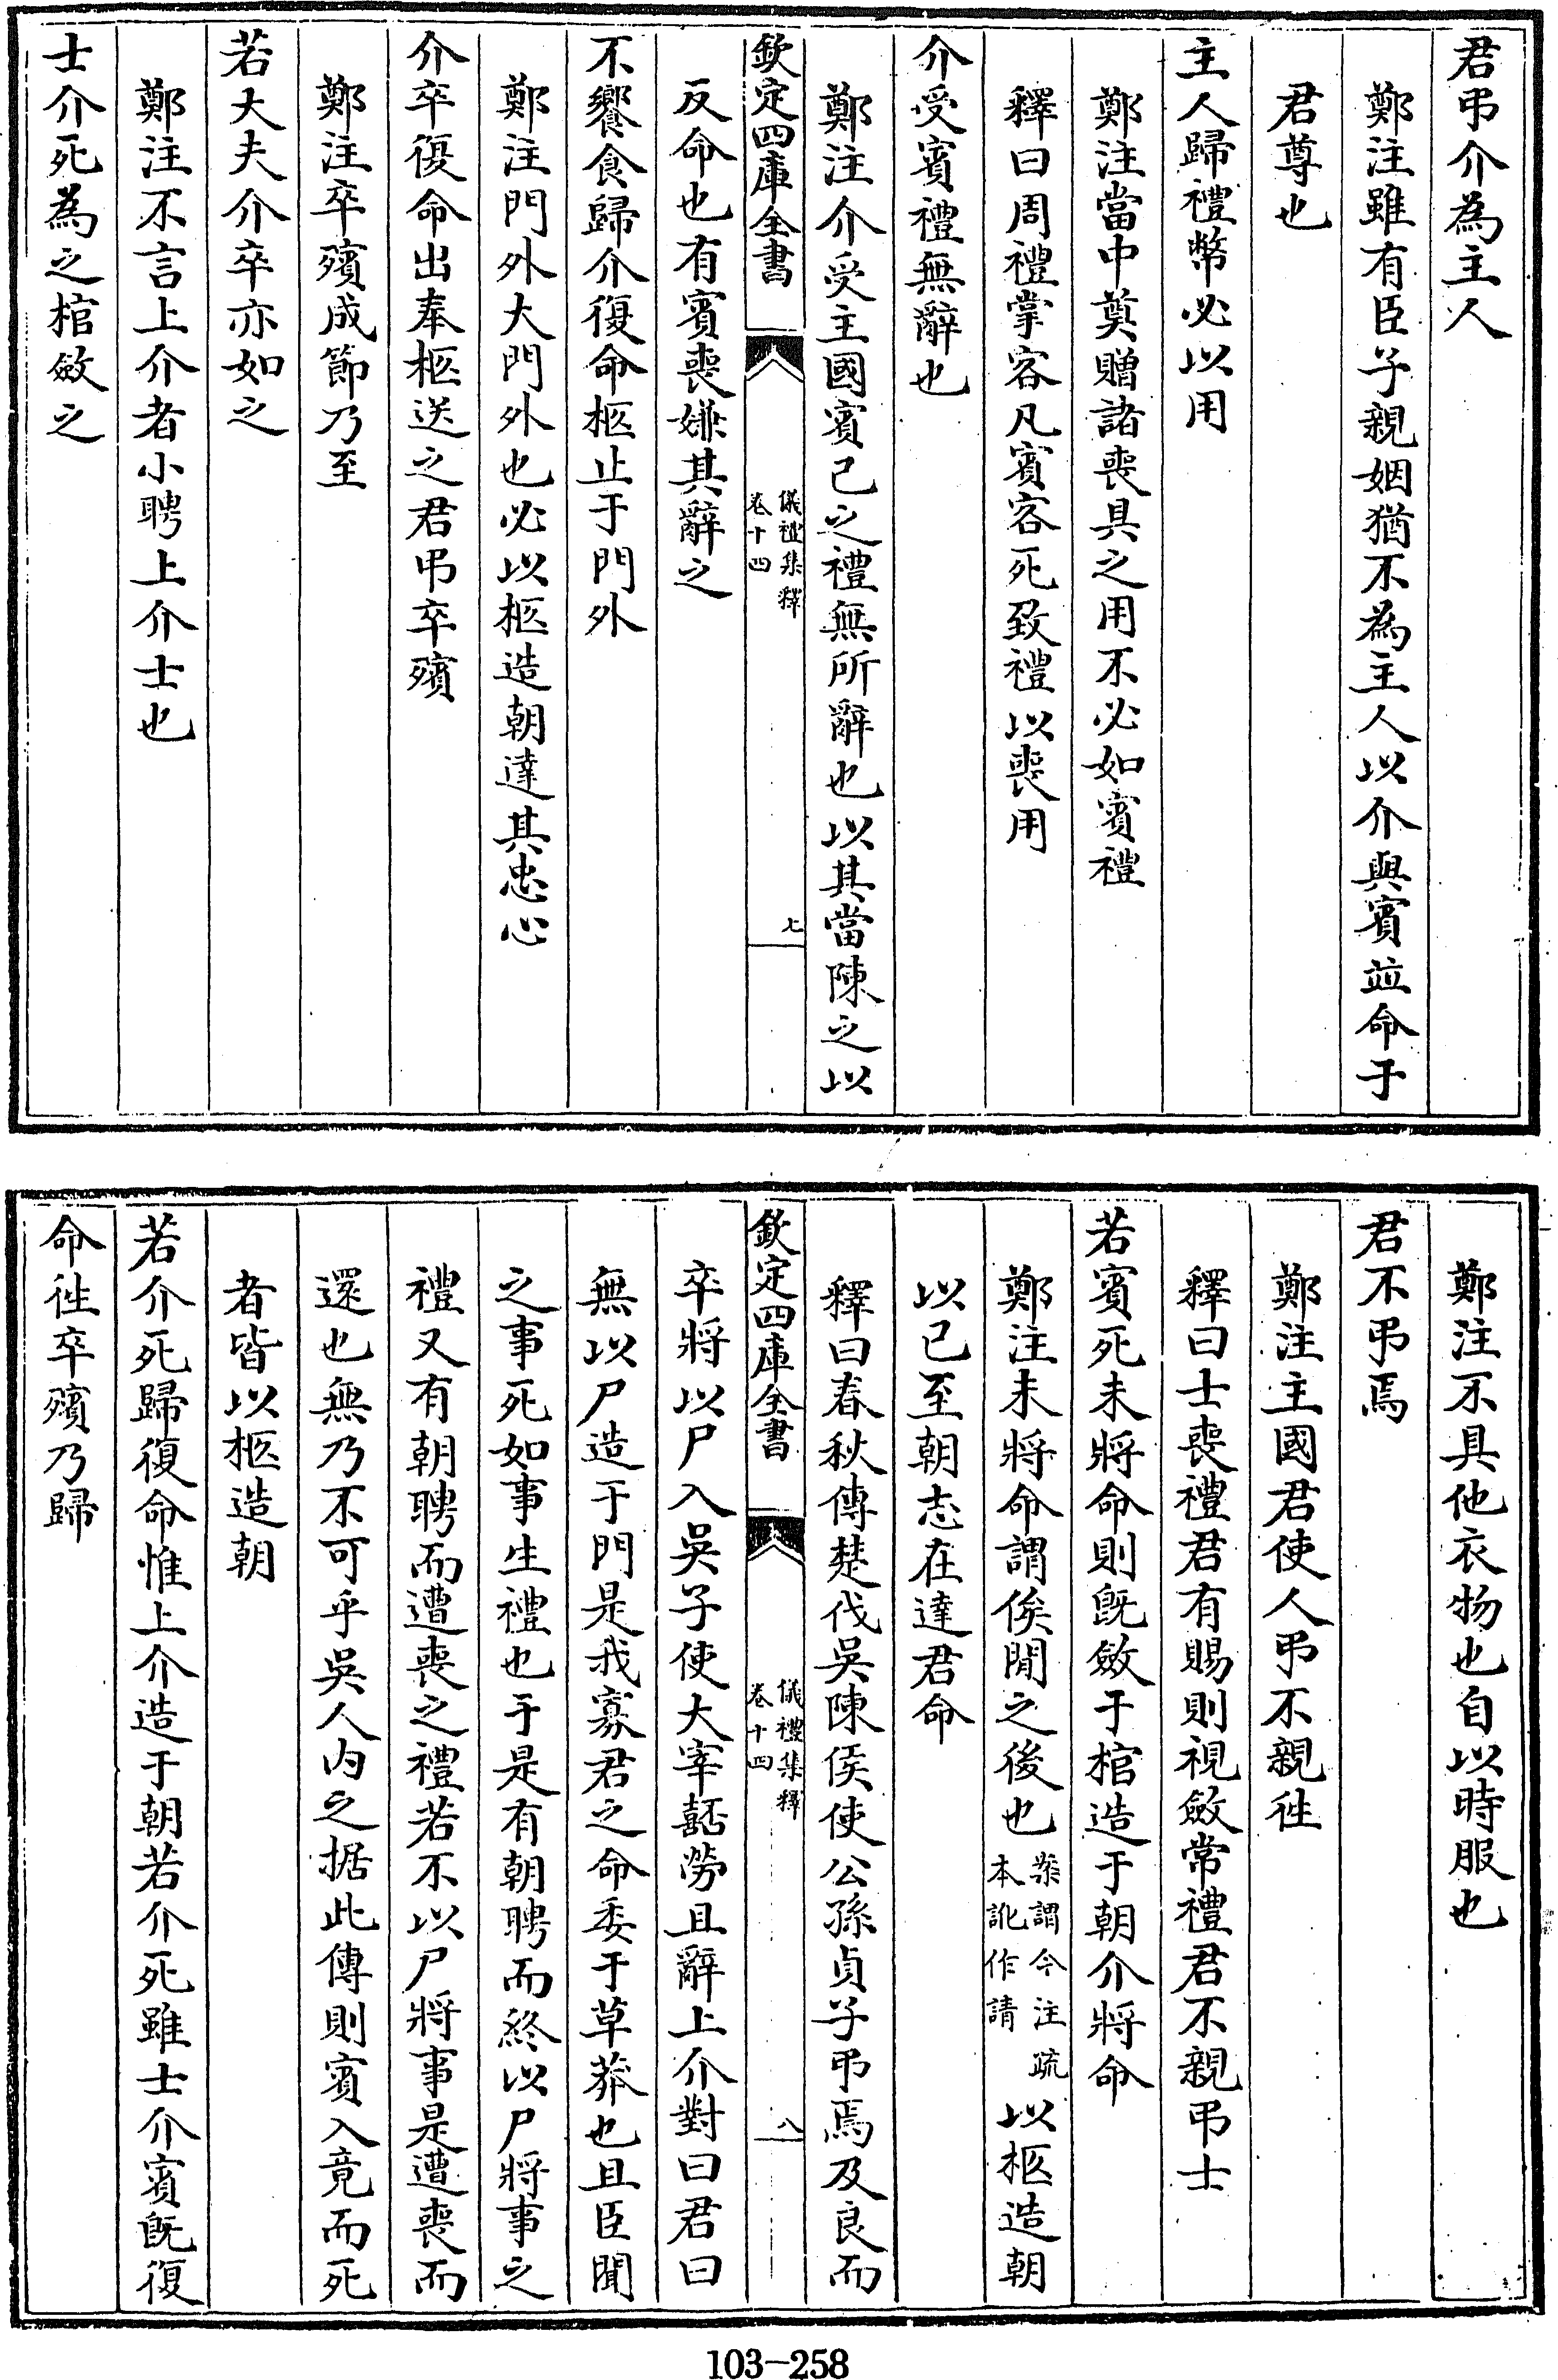 君弔介為主人
鄭注雖有臣子親姻猶不為主人以介與賓並命于
君尊也
主人歸禮幣必以用
鄭注當中奠贈諸喪具之用不必如賓禮
釋曰周禮掌客凡賓客死致禮以喪用
介受賓禮無辭也
鄭注介受主國賓己之禮無所辭也以其當陳之以
欽定四庫全書
儀禮集釋
卷十四
七
反命也有賓喪嫌其辭之
不饗食歸介復命柩止于門外
鄭注門外大門外也必以柩造朝達其忠心
介卒復命出奉柩送之君弔卒殯
鄭注卒殯成節乃至
若大夫介卒亦如之
鄭注不言上介者小聘上介士也
士介死為之棺斂之
鄭注不具他衣物也自以時服也
君不弔焉
鄭注主國君使人弔不親往
釋曰士喪禮君有賜則視斂常禮君不親弔士
若賓死未將命則既斂于棺造于朝介將命
鄭注未將命謂俟閒之後也案謂今注疏本訛作請以柩造朝
以已至朝志在達君命
釋曰春秋傳楚伐吳陳侯使公孫貞子弔焉及良而
欽定四庫全書
儀禮集釋
卷十四
八
卒將以尸入吳子使大宰嚭勞且辭上介對曰君曰
無以尸造于門是我寡君之命委于草莽也且臣聞
之事死如事生禮也于是有朝聘而終以尸將事之
禮又有朝聘而遭喪之禮若不以尸將事是遭喪而
還也無乃不可乎吳人内之据此傳則賓入竟而死
者皆以柩造朝
若介死歸復命惟上介造于朝若介死雖士介賓既復
命往卒殯乃歸
103-258